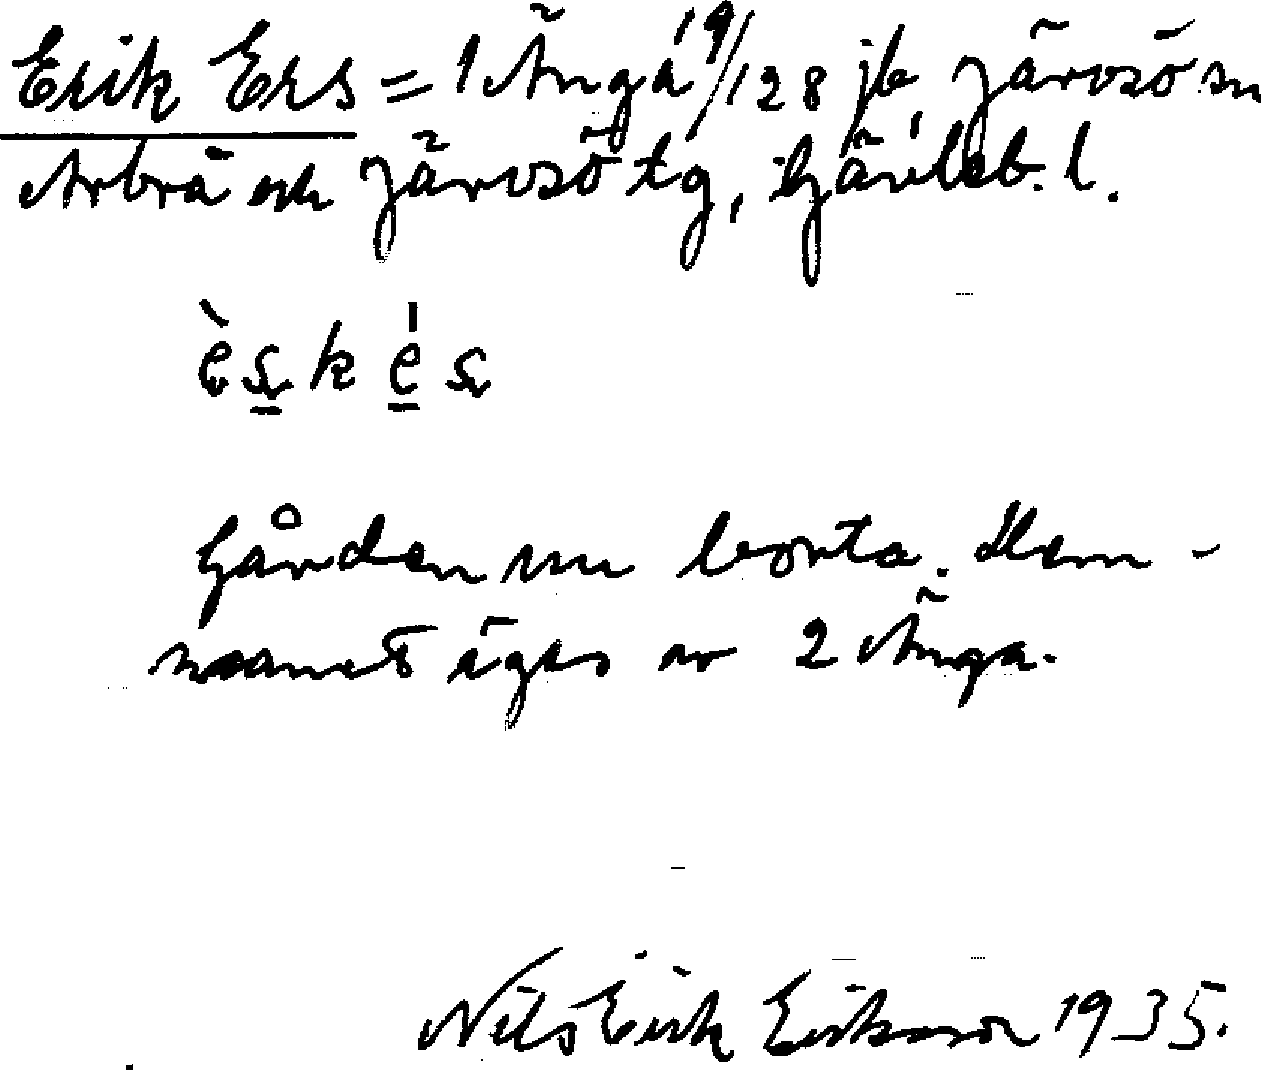 Erik Ers = 1 Änga 19/128 jb, Järvsö sn
Arbrå och Järvsö tg, Gävleb. l.
èskés
Gården nu borta. Hem-
manet äges av 2 Änga.
Nils Erik Eriksson 1935.